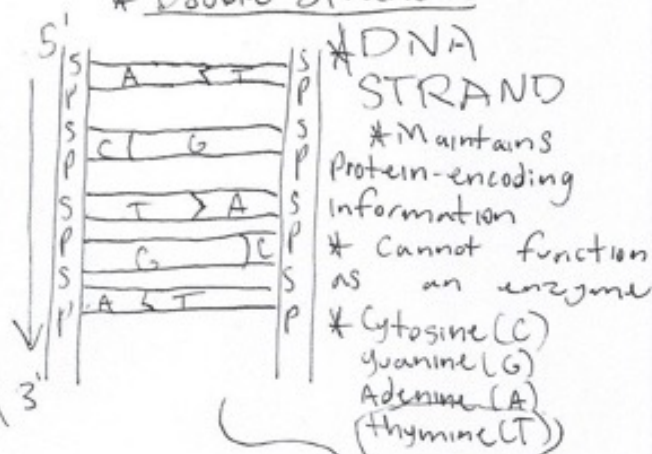 * Double
5'
S A T S
P P
S C G S
P P
S T A S
P G C P
S S
P A T P
3'
*DNA
STRAND
*Maintains
Protein-encoding
Information
* Cannot function
as an enzyme
* Cytosine (C)
guanine (G)
Adenine (A)
(thymine (T))